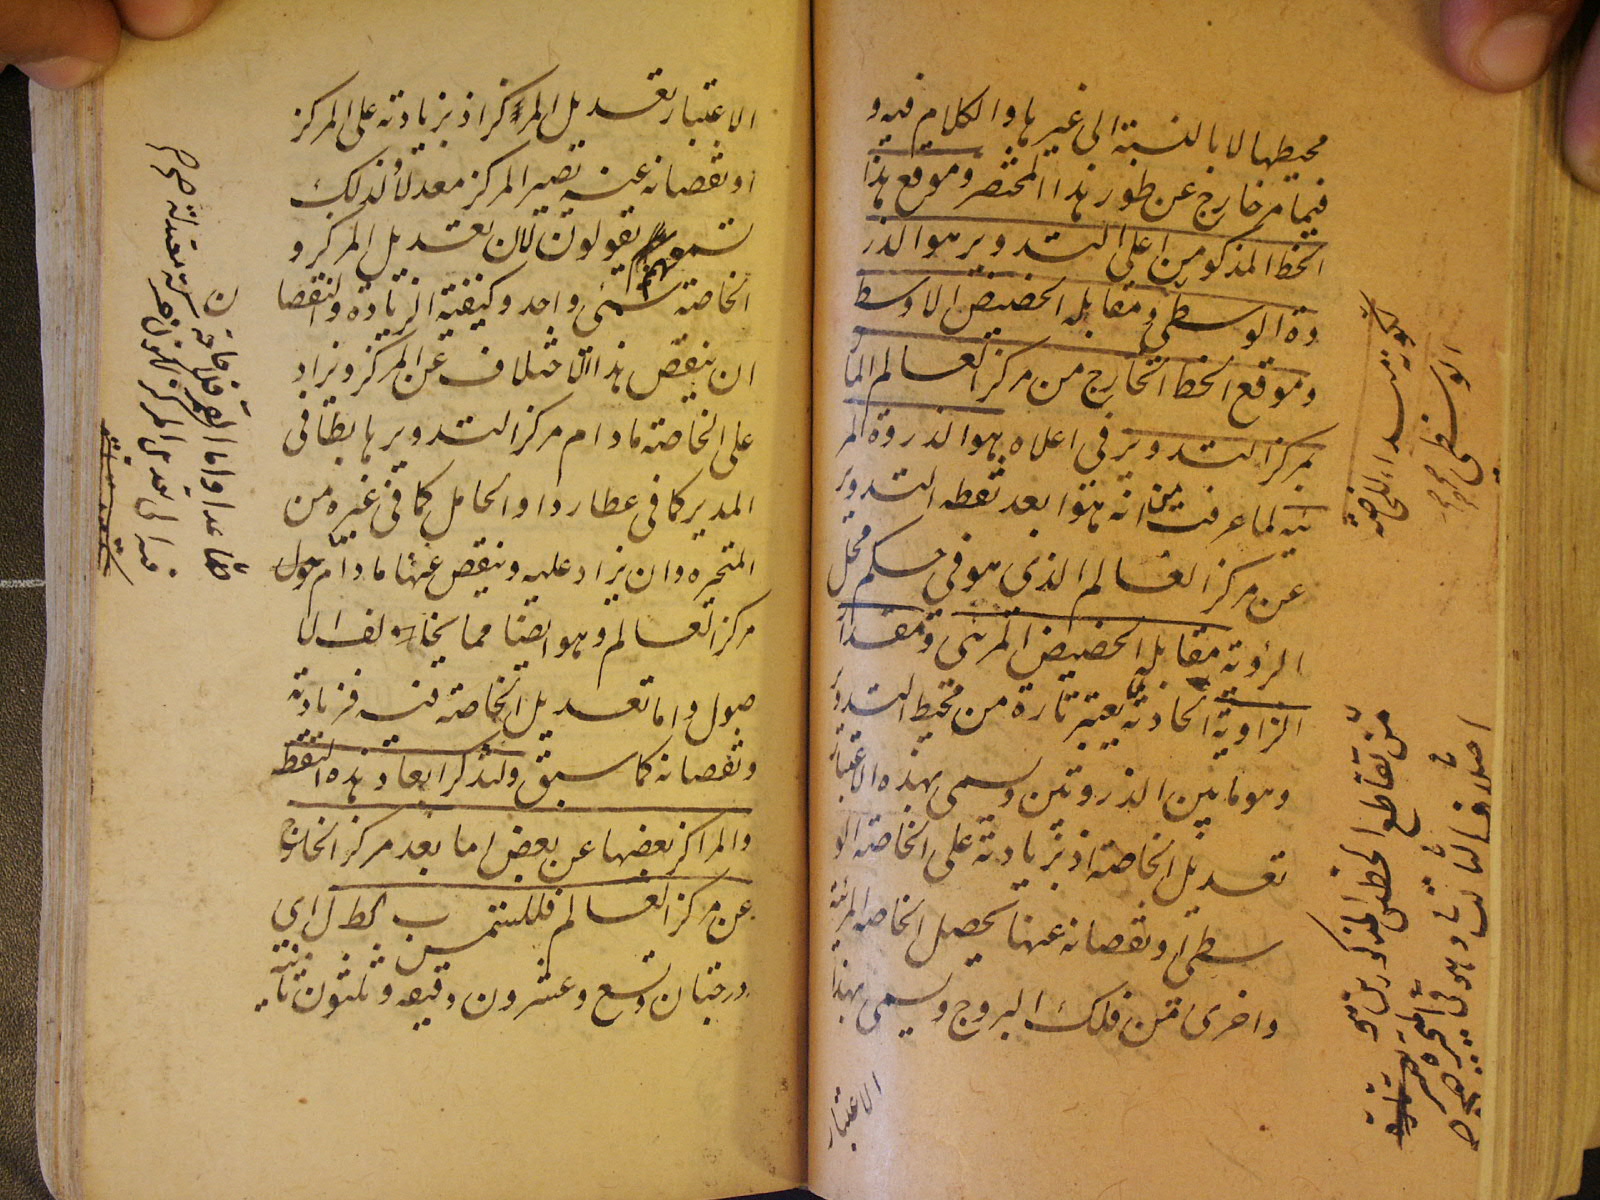 محيطها لا بالنسبة الى غيرها والكلام فيه و
فيما مر خارج عن طور هذا المختصر وموقع هذا
الخط المذكور من اعلى التدوير هو الذر
وة الوسطى ومقابله الحضيض الاوسط
وموقع الخط الخارج من مركز العالم المار
بمركز التدوير في اعلاه هو الذروة المر
ئية لما عرفت من انه هو ابعد نقطه التدوير
عن مركز العالم الذى هو في حكم محل
الرؤية مقابله الحضيض المرئى ومقدار
الزاوية الحادثة يعتبر تارة من محيط التدوير
وهو ما بين الذروتين ويسمى بهذه الاعتبار
تعديل الخاصة اذ بزيادته على الخاصة الو
سطى او نقصانه عنها يحصل الخاصه المرئية
واخرى من فلك البروج ويسمى بهذا
الاعتبار
كونه مبداء للخاصة
الوسطى
من تقاطع الخطين المذكورين هو
الاعتبار تعديل المركز اذ بزيادته على المركز
او نقصانه عنه يصير المركز معدلا ولذلك
تسمعهم يقولون لان تعديل المركز و
الخاصة شئ واحد وكيفية الزيادة والنقصا
ان ينقص هذا الاختلاف عن المركز ويزاد
على الخاصة مادام مركز التدوير هابطا في
المدير كما في عطارد او الحامل كما في غيره من
المتحيره وان يزاد عليه وينقص عنها مادام حول
مركز العالم وهو ايضا مما يخا لف الا
صول واما تعديل الخاصة فيه فزيادته
ونقصانه كما سبق ولنذكر ابعاد هذه النقط
والمراكز بعضها عن بعض اما بعد مركز الخارج
عن مركز العالم فللشمس ب كط ل اى
درجتان وتسع وعشرون دقيقه وثلثون ثانية